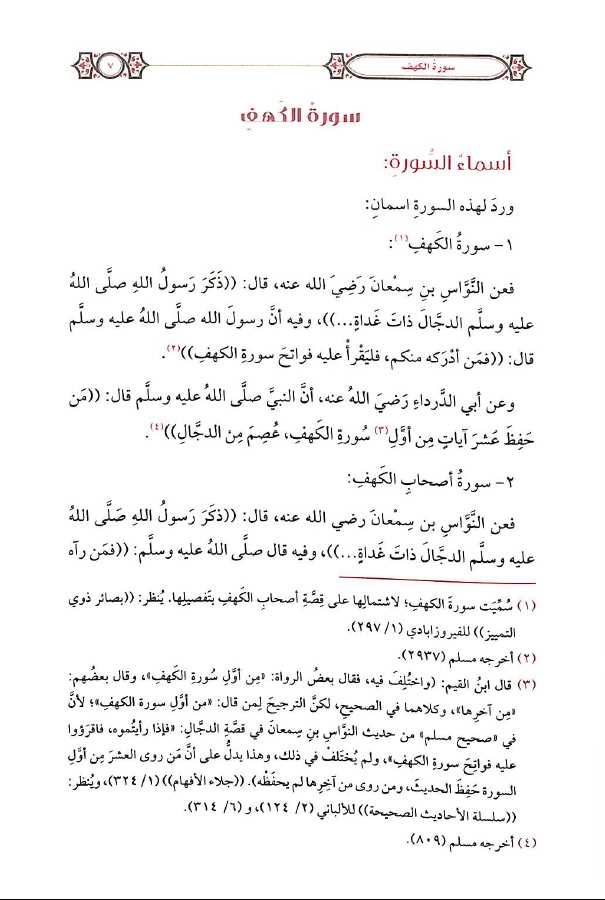 سورة الكهف
٧
سورةُ الكَهفِ
أسماءُ السُّورةِ:
وردَ لهذه السورةِ اسمانِ:
١- سورةُ الكَهفِ(١):
فعن النَّوَّاسِ بنِ سِمْعانَ رَضِيَ الله عنه، قال: ((ذَكَرَ رَسولُ اللهِ صلَّى اللهُ
عليه وسلَّم الدجَّالَ ذاتَ غَداةٍ...))، وفيه أنَّ رسولَ الله صلَّى اللهُ عليه وسلَّم
قال: ((فمَن أدْرَكه منكم، فليَقْرأْ عليه فواتحَ سورةِ الكهفِ))(٢).
وعن أبي الدَّرداءِ رَضيَ اللهُ عنه، أنَّ النبيَّ صلَّى اللهُ عليه وسلَّم قال: ((مَن
حَفِظَ عَشرَ آياتٍ مِن أوَّلِ(٣) سُورةِ الكَهفِ، عُصِمَ مِن الدجَّالِ))(٤).
٢- سورةُ أصحابِ الكَهفِ:
فعن النَّوَّاسِ بنِ سِمعانَ رضي الله عنه، قال: ((ذكَرَ رَسولُ اللهِ صَلَّى اللهُ
عليه وسلَّم الدجَّالَ ذاتَ غَداةٍ...))، وفيه قال صلَّى اللهُ عليه وسلَّم: ((فمَن رآه
(١) سُمِّيَت سورةَ الكهفِ؛ لاشتمالِها على قِصَّةِ أصحابِ الكَهفِ بتَفصيلِها. يُنظر: ((بصائر ذوي
التمييز)) للفيروزابادي (١/ ٢٩٧).
(٢) أخرجه مسلم (٢٩٣٧).
(٣) قال ابنُ القيم: (واختُلِفَ فيه، فقال بعضُ الرواة: «مِن أوَّلِ سُورةِ الكَهفِ»، وقال بعضُهم:
«مِن آخرِها»، وكلاهما في الصحيحِ، لكنَّ الترجيحَ لِمن قال: «من أوَّلِ سورة الكهفِ»؛ لأنَّ
في «صحيح مسلم» من حديث النوَّاسِ بنِ سِمعانَ في قصَّةِ الدجَّال: «فإذا رأيتُموه، فاقرَؤوا
عليه فواتِحَ سورةِ الكهفِ»، ولم يُختَلفْ في ذلك، وهذا يدلُّ على أنَّ مَن روى العشرَ مِن أوَّلِ
السورة حَفِظَ الحديثَ، ومن روى من آخِرِها لم يحفَظْه). ((جلاء الأفهام)) (١/ ٣٢٤)، ويُنظر:
((سلسلة الأحاديث الصحيحة)) للألباني (٢/ ١٢٤)، و (٦/ ٣١٤).
(٤) أخرجه مسلم (٨٠٩).